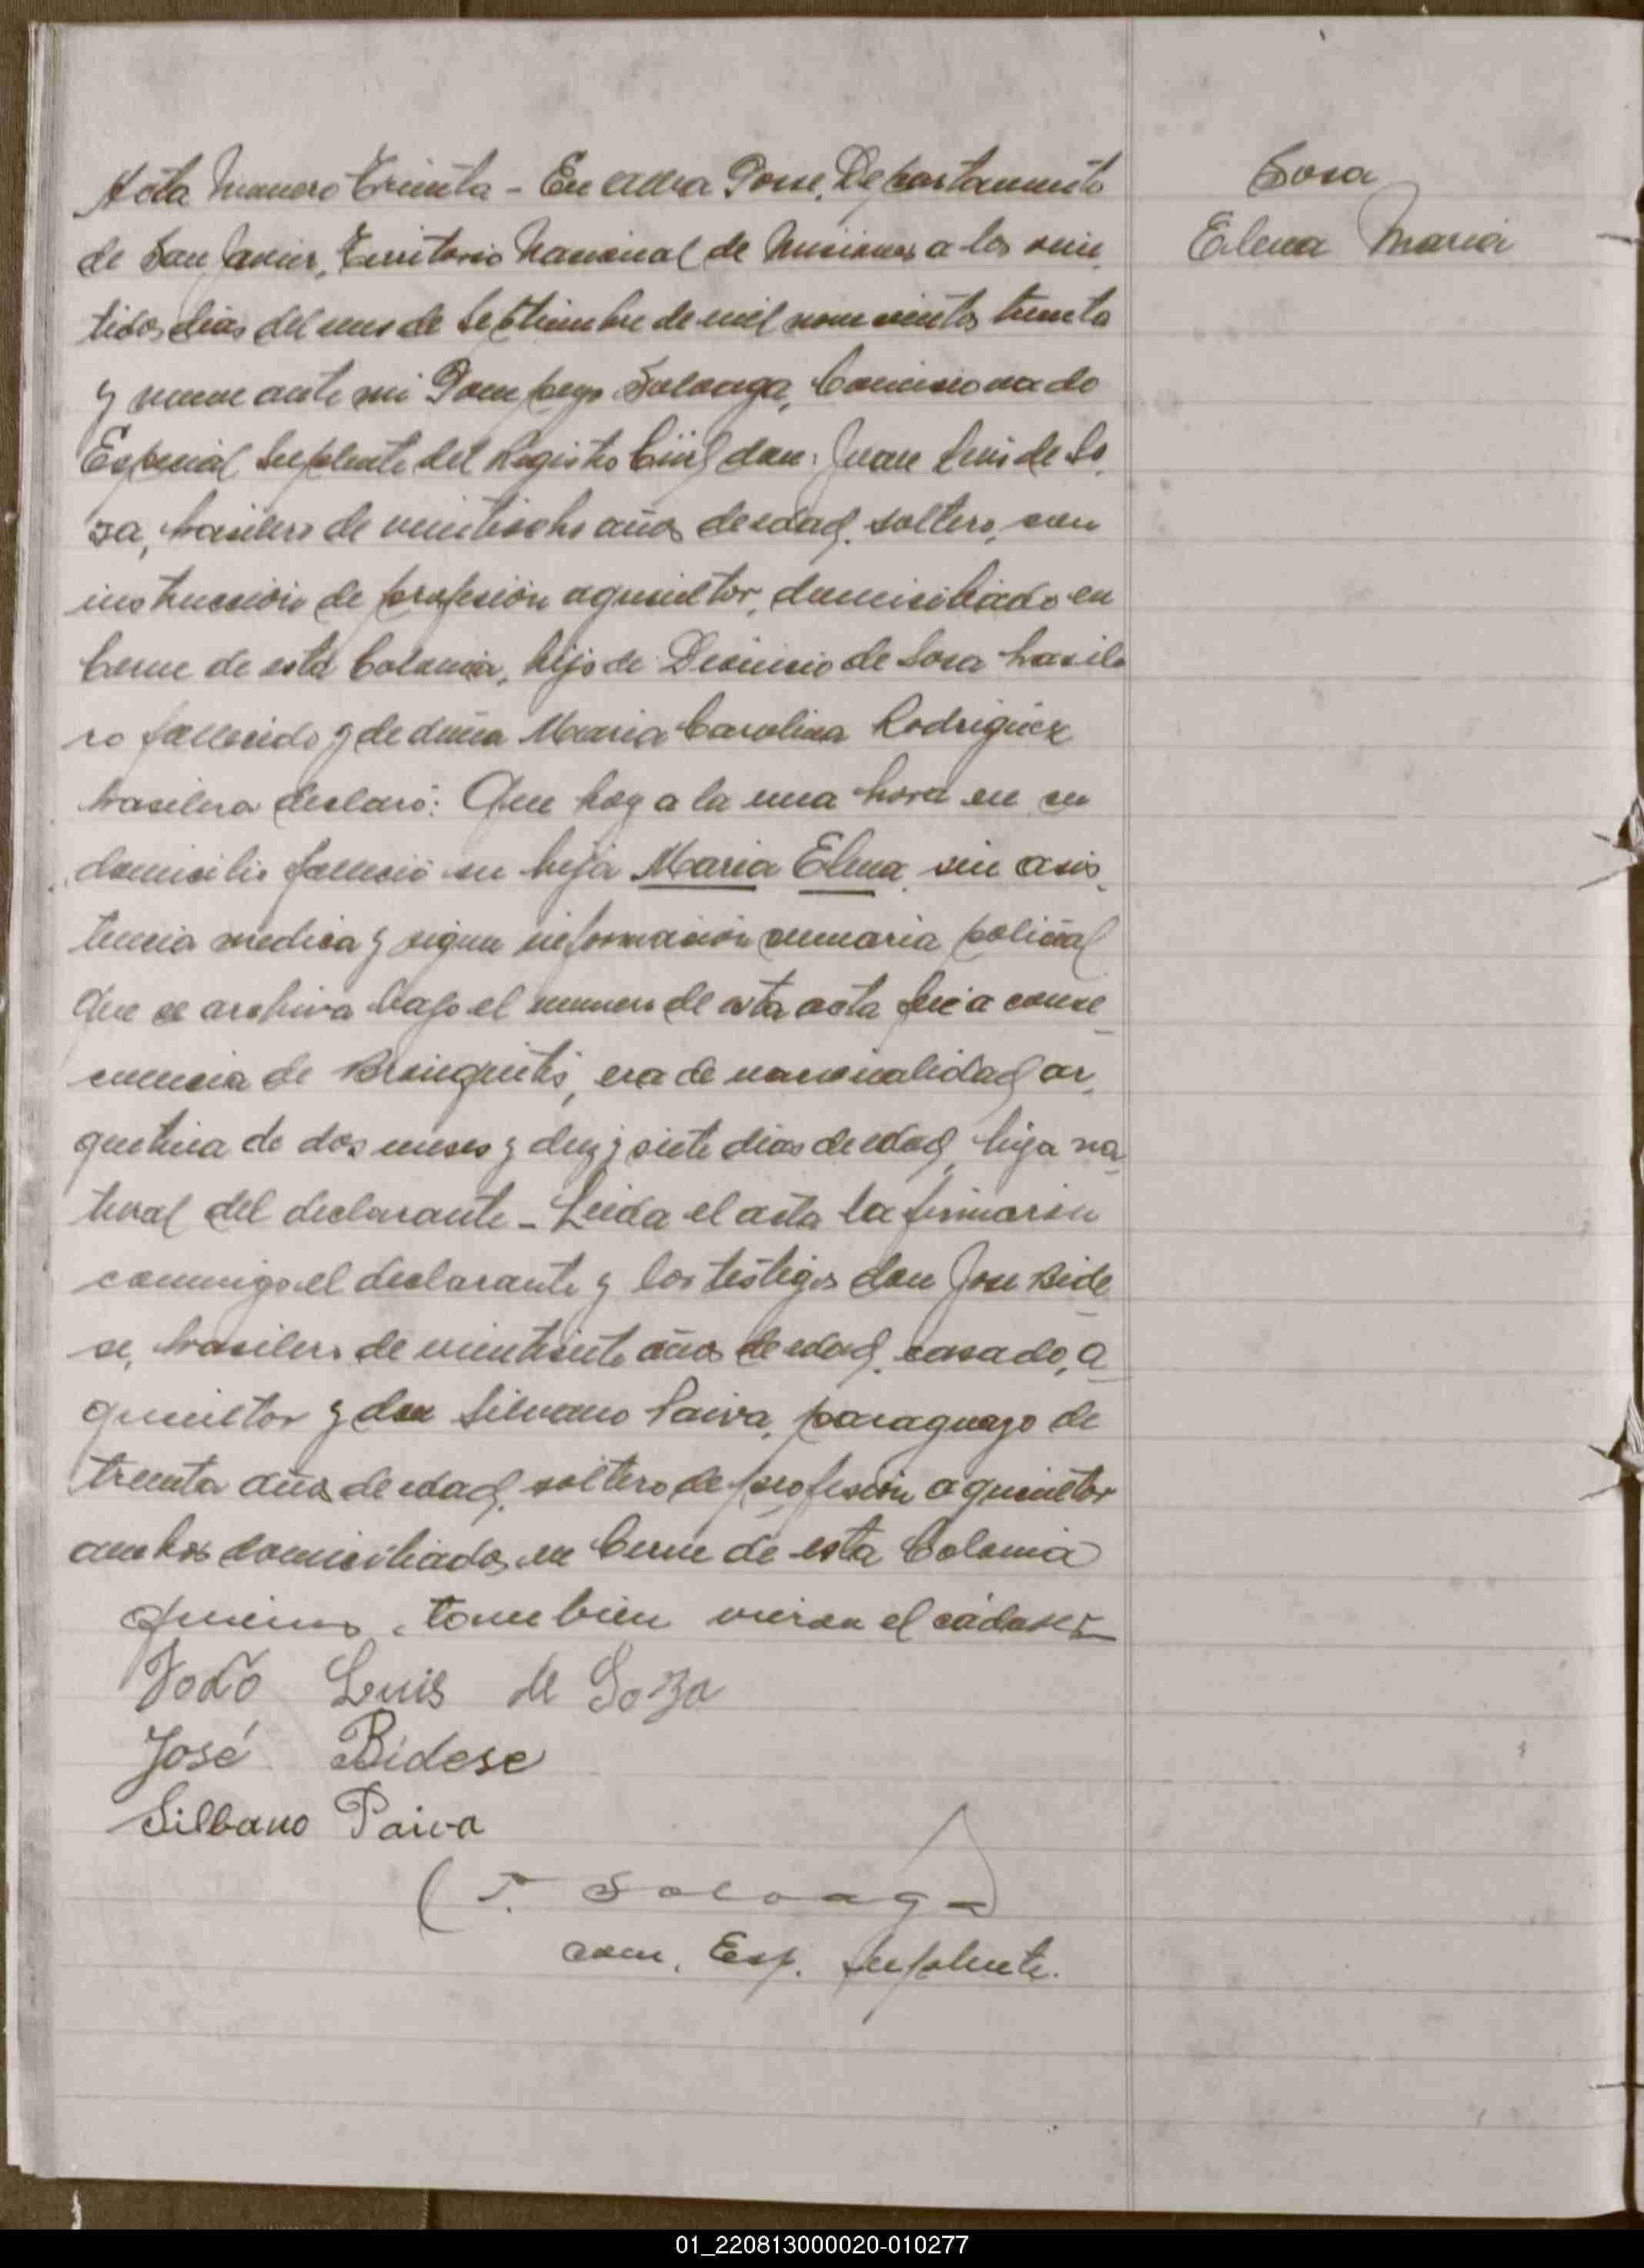 Acta Numero Treinta - En Alba Posse, Departamento
de San Javier, Territorio Nacional de Misiones a los vein
tidos dias del mes de Septiembre de mil novecientos treinta
y nueve ante mi Pompeyo Soloaga, Comisionado
Especial Suplente del Registro Civil don: Juan Luis de So
za, brasilero de veintiocho años de edad, soltero, con
instruccion de profesión agricultor, domiciliado en
de esta Colonia, hijo de Dionicio de Sosa brasile
ro fallecido y de doña Maria Carolina Rodriguez
brasilera declaró: Que hoy a la una hora en su
domicilio falleció su hija Maria Elena, sin asis
tencia medica y segun informacion sumaria policial
que se archiva bajo el numero de esta acta fué a conse
cuencia de Bronquitis, era de nacionalidad ar
gentina de dos meses y diez y siete dias de edad, hija na
tural del declarante - Leida el acta la firmaron
conmigo el declarante y los testigos don Jose Bide
se, brasilero de veintisiete años de edad, casado, a
gricultor y don Silvano Paiva, paraguayo de
treinta años de edad, soltero de profesión agricultor
ambos domiciliados en de esta Colonia
quienes tambien vieron el cadaver
João Luis de Soza
José Bidese
Silbano Paiva
P. Soloaga
Com. Esp. Suplente.
Sosa
Elena Maria
01_220813000020-010277